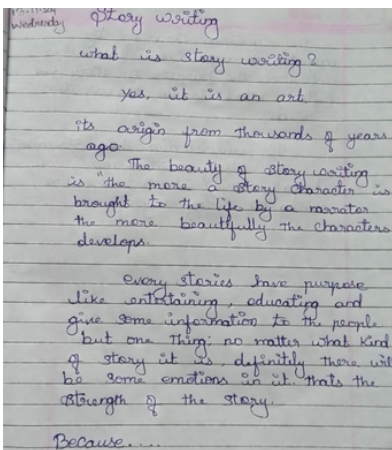 Wednesday
Story writing
what is story writing?
yes, it is an art
its origin from thousands of years
ago
The beauty of story writing
is "the more a story character is
brought to the life by a narrator
the more beautifully the characters
develops.
every stories have purpose
like entertaining, educating and
give some information to the people
but one thing: no matter what kind
of story it is, definitely there will
be some emotions in it. thats the
strength of the story.
Because.....